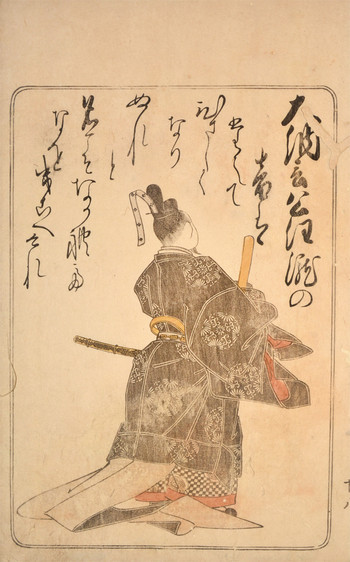 大納言公任 瀧の
音は
たえて
ひさしく
なり
ぬれ
と
名こそなかれて
なを聞こへけれ